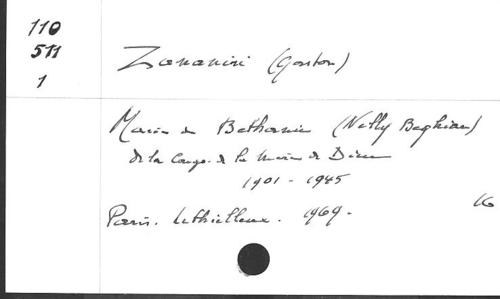 110
511
1
Zananiri (Gaston)
Marie de Bethanie (Nelly Beghian)
de la Congr. de la Mère de Dieu
1901 - 1945
Paris. Lethielleux. 1969.
16